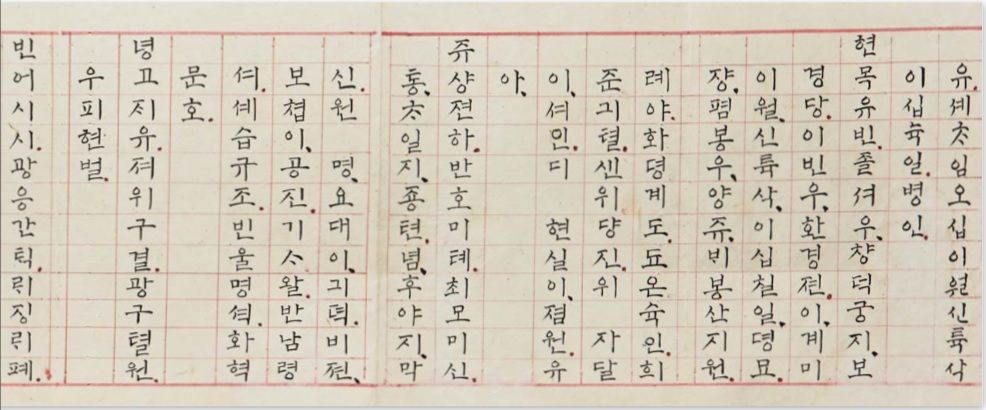 유.셰ᄎᆞ임오십이월신륙삭
이십륙일.병인.
현목유빈.졸셔우.챵덕궁지.보
경당.이빈우.환경젼.이.계미
이월.신륙삭.이십칠일.뎡묘.
쟝.폄봉우.양쥬.비봉산지원.
례야.화뎡계도.됴온슉인.희
준긔텰.센위댱진.위 자달
이.셔민.디 현실이.졈원.유
아.
쥬샹젼하.반호미톄.최모미신
통.ᄎᆞ일지.죵텬.념.후야지.막
신.원 명.요대이.긔뎍.비젼.
보쳡이.공진.기ᄉᆞ왈.반남령
셔.셰습규조.빈울명셕.화혁
문호.
녕고지유.져위구결.광구텰원.
우피현벌.
빈어시시.광응간틱.뤼징뤼폐.